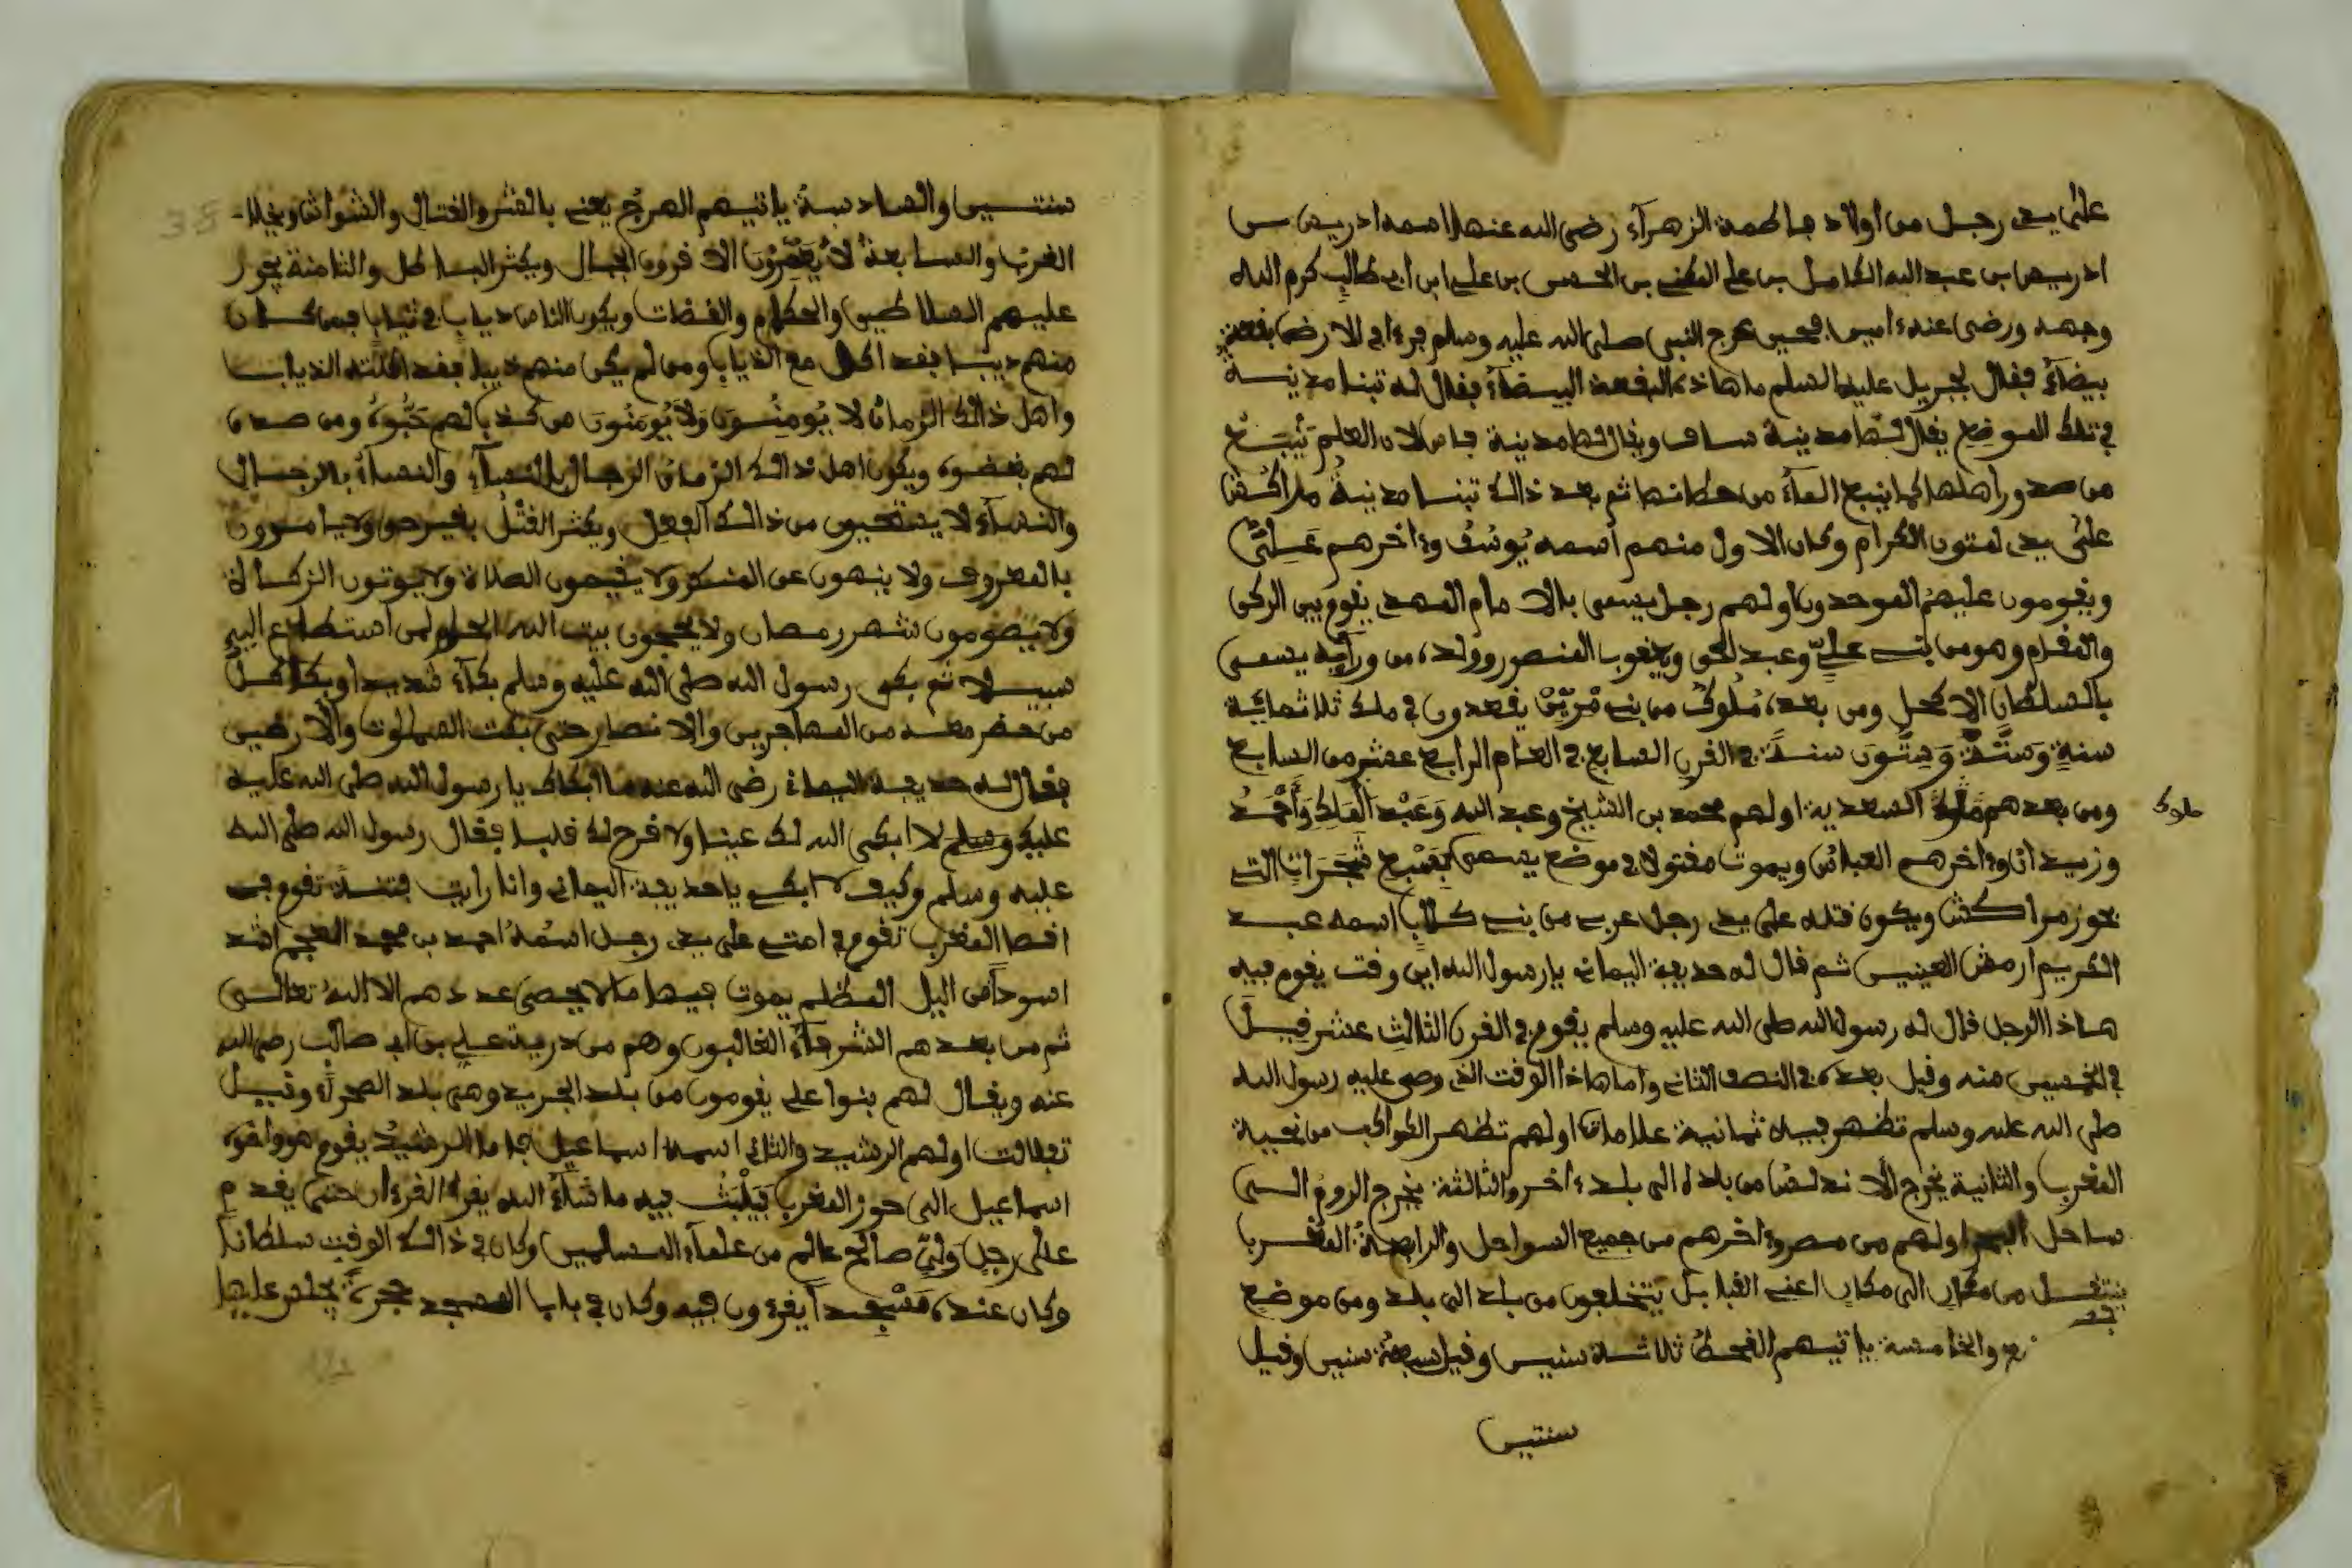 على يدي رجل من اولاد فاطمة الزهرآء رضى الله عنها اسمه ادريس بن
ادريس بن عبد الله الكامل بن على المكنى بن الحسن بن علي ابن أبي طالب كرم الله
وجهه ورضى عنه ءامين فحين عرج النبي صلى الله عليه وسلم فرءا في الارض بقعة
بيضآء فقال لجبريل عليه السلم ما هاذه البقعة البيضآء فقال له تبنا مدينة
في تلك الموضع يقال لها مدينة ساف ويقال لها مدينة فاس لان العلم ينبع
من صدور اهلها كما ينبع المآء من حطانها ثم بعد ذالك تبنا مدينة مراكش
على يدي لمتون الكرام وكان الاول منهم اسمه يوسف وءاخرهم علي
ويقومون عليهم الموحدون اولهم رجل يسمى بالامام المهدي يقوم بين الركن
والمقام وهو من بني علي وعبد الحق ويعقوب المنصور وولده من ورآيه يسمى
بالسلطان الاكحل ومن بعده ملوك من بني مرين يقعدون في ملك ثلاثماية
سنة وستة وستون سنة في القرن السابع في العام الرابع عشر من السابع
ومن بعدهم ملوك السعدية اولهم محمد بن الشيخ وعبد الله وعبد الملك وأحمد
ملوك
وزيدان وءاخرهم العباس ويموت مقتولا في موضع يسمى بسبع شجرات التي
بحوز مراكش ويكون قتله على يدي رجل عربي من بني كلاب اسمه عبد
الكريم ارمش العينين ثم قال له حديفة اليماني يا رسول الله اين وقت يقوم فيه
هاذا الرجل قال له رسول الله صلى الله عليه وسلم يقوم في القرن الثالث عشر قيل
في الخميس منه وقيل بعده في النصف الثاني واما هاذا الوقت الذي وصى عليه رسول الله
صلى الله عليه وسلم تظهر فيه ثمانية علامات اولهم تظهر الكواكب من نحية
المغرب والثانية يخرج الاندلس من بلاده الى بلد ءاخر والثالثة يخرج الروم الى
ساحل البحر اولهم من مصر وءاخرهم من جميع السواحل والرابعة المغرب
ينتقل من مكان الى مكان اعني القبايل يتخلعون من بلد الى بلد ومن موضع
والخامسة ياتيهم القحط ثلاثة سنين وقيل سبعة سنين وقيل
سنتين
سنتين والسادسة ياتيهم الهرج يعني بالشر والقتال والتشواش ويخلا
الغرب والسابعة لا يعمرون الا قرون الجبال ويكثر الباطل والثامنة يجور
عليهم السلاطين والحكام والقضات ويكون الناس دياب في ثياب فمن كان
منهم ديبا فقد اكل مع الذياب ومن لم يكن منهم ذيبا فقد اكلته الذياب
واهل ذالك الزمان لا يومنون ولا يومنون من كذب لهم حبوه ومن صدق
لهم بغضوه ويكون اهل ذالك الزمان الرجال بالنسآء والنسآء بالرجال
والنسآء لا يستحيون من ذالك الفعل ويكثر القتل بغير حق ولا يامرون
بالمعروف ولا ينهون عن المنكر ولا يقيمون الصلاة ولا يوتون الزكاة
ولا يصومون شهر رمضان ولا يحجون بيت الله الحرام لمن استطاع اليه
سبيلا ثم بكى رسول الله صلى الله عليه وسلم بكآء شديدا وبكا كل
من حضر معه من المهاجرين والانصار حتى بكت السماوات والارضين
فقال له حديفة اليماني رضى الله عنه ما ابكاك يا رسول الله صلى الله عليه
عليك وسلم لا ابكى الله لك عينا ولا قرح لك قلبا فقال رسول الله صلى الله
عليه وسلم وكيف لا ابكي يا حديفة اليماني وانا رايت فتنة تقوم في
اقصا المغرب تقوم في امتي على يدي رجل اسمه احمد بن محمد العجم اشد
اسودا من اليل المظلم يموت فيها ما لا يحصى عددهم الا الله تعالى
ثم من بعدهم الشرفآء الغالبون وهم من درية علي بن أبي طالب رضي الله
عنه ويقال لهم بنوا علي يقومون من بلد الجريد وهي بلد الصحراء وقيل
تفلالت اولهم الرشيد والثاني اسمه اسماعيل فاما الرشيد يقوم هو واخوه
اسماعيل الى حوز المغرب فيلبث فيه ما شآء الله يقرا القرءان حتى يقدم
على رجل ولي صالح عالم من علمآء المسلمين وكان في ذالك الوقت سلطانا
وكان عنده مسجدا يقرءون فيه وكان في باب المسجد حجرة يجلس عليها